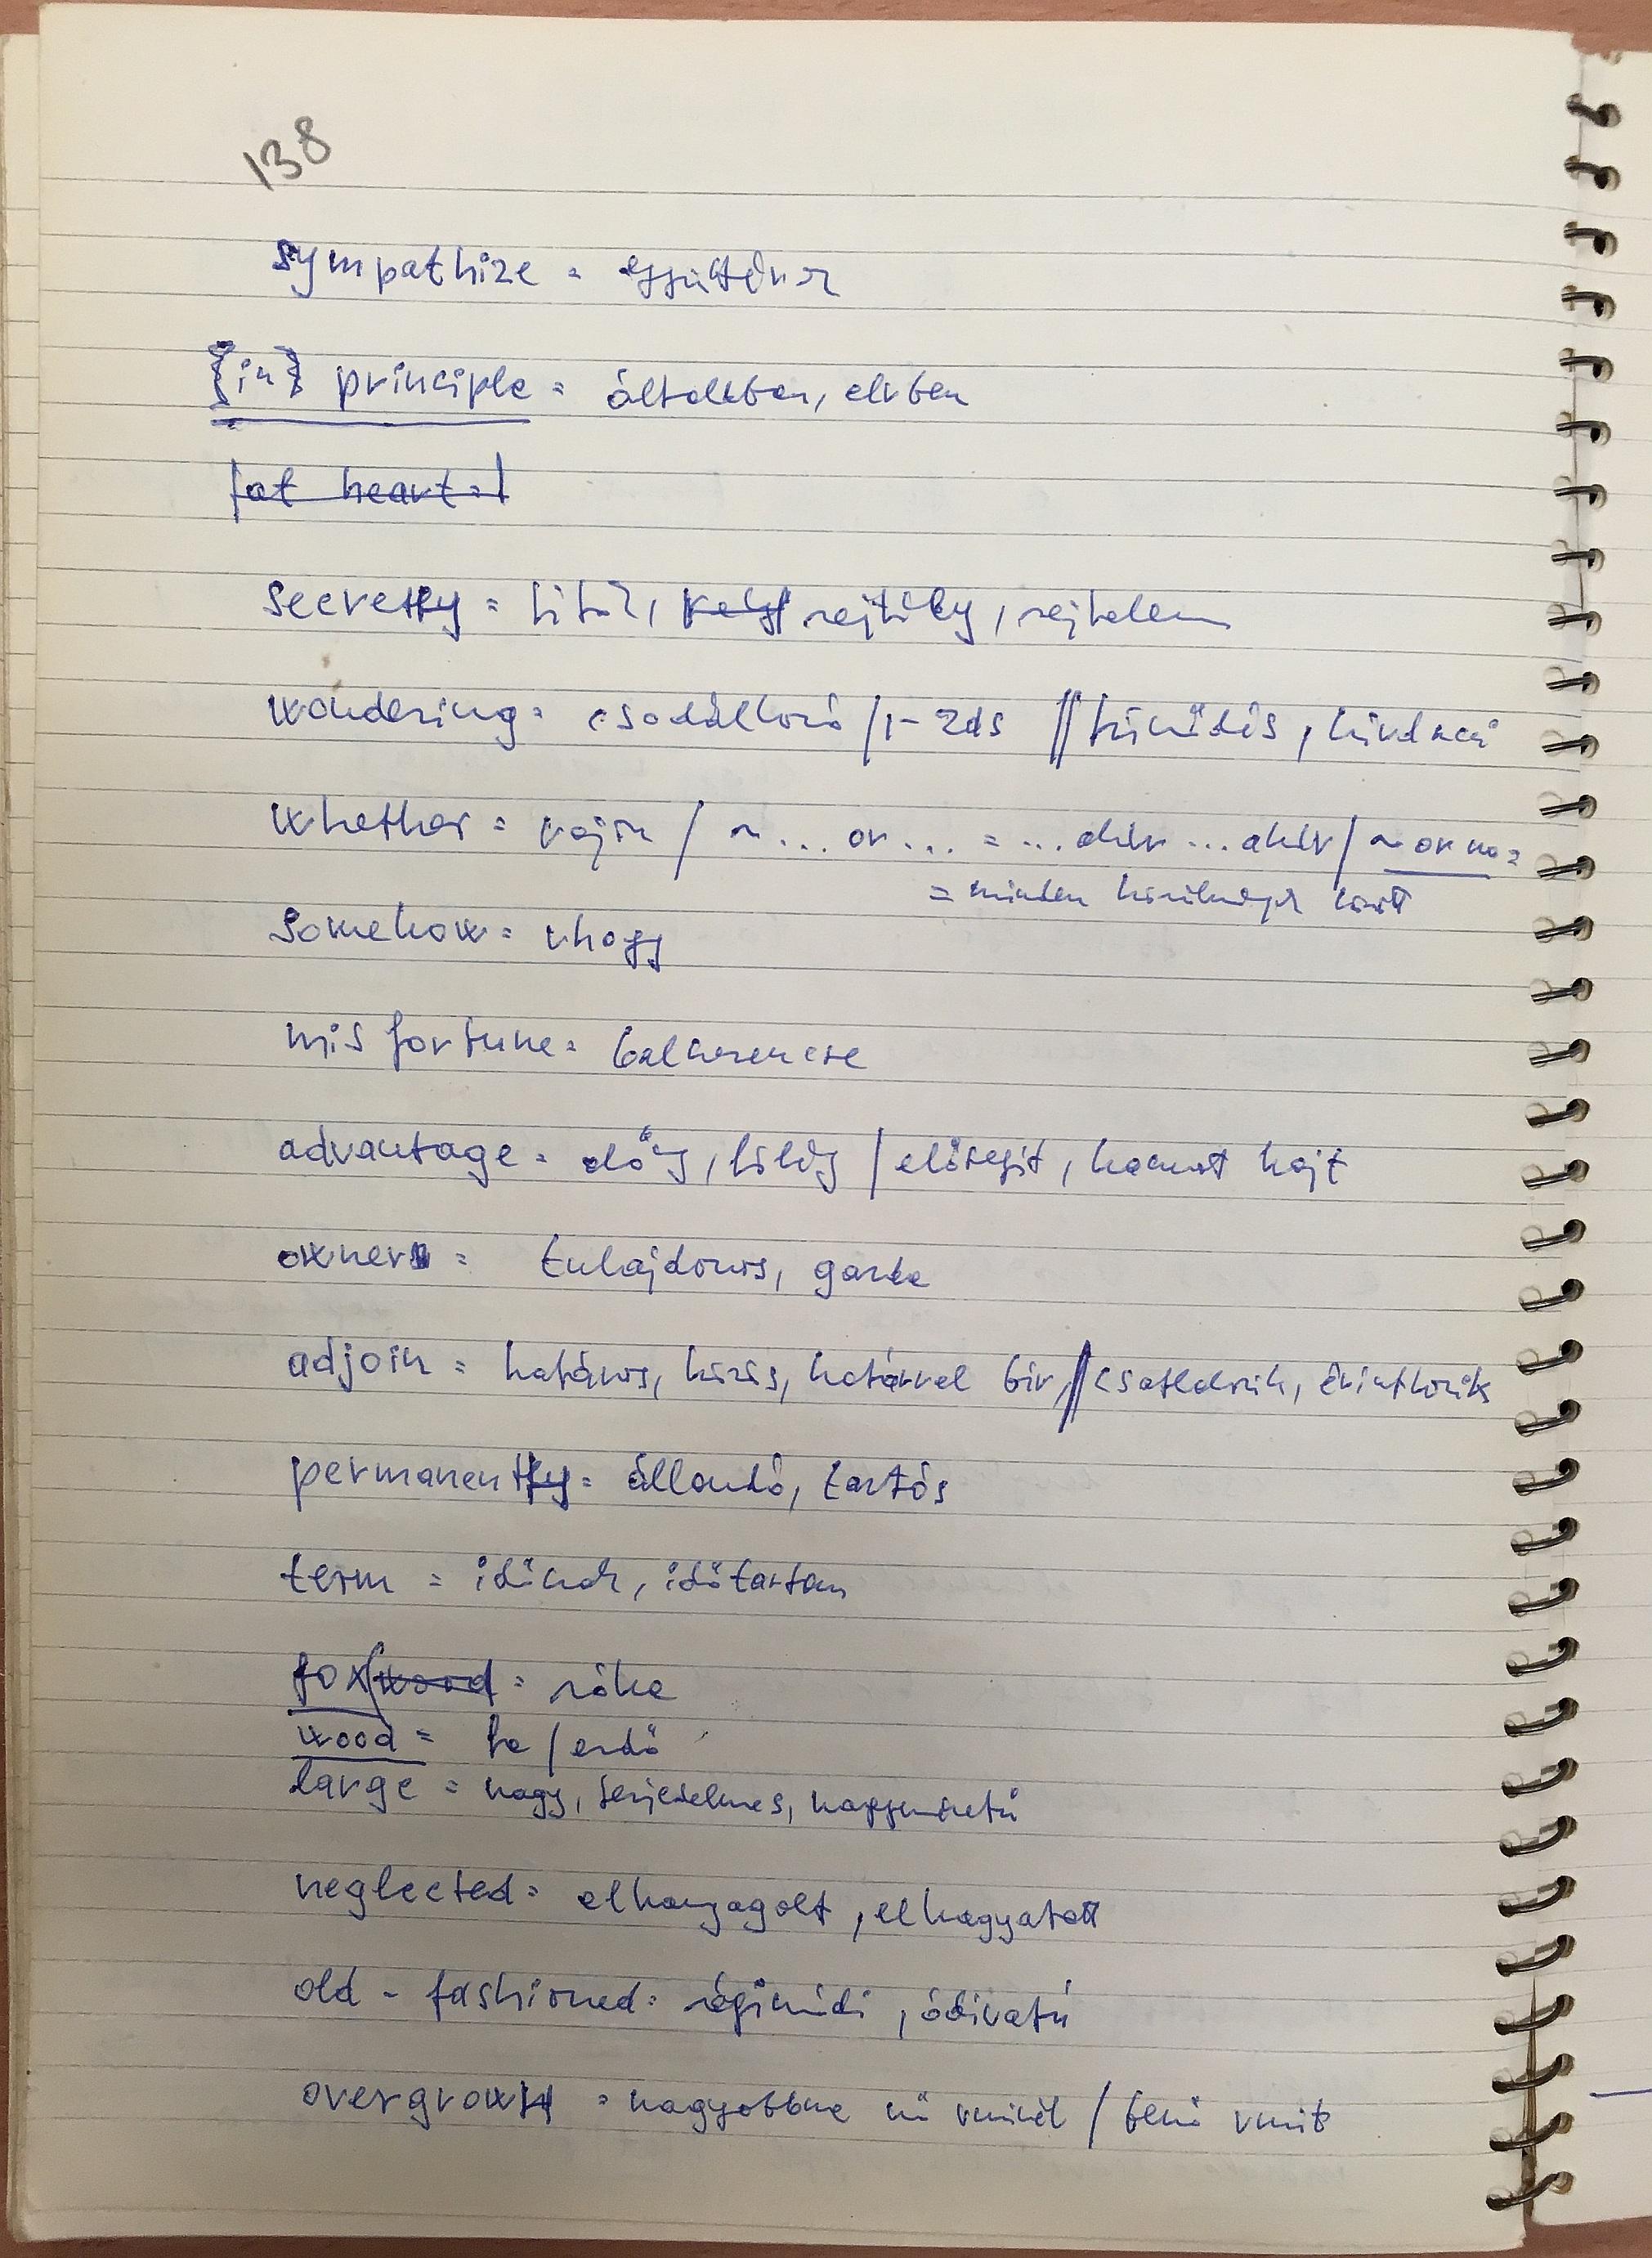 138
sympathize = együttérez
{in} principle = általában, elvben
at heart =
secretly = titok, rejtély, rejtelem
wondering = csodálkozó / r- zás // tűnődés, kíváncsi
whether = vajon / ~ ... or ... = ... akár ... akár / ~ or no =
= minden körülmények között
somehow = vhogy
misfortune = balszerencse
advantage = előny, fölény / elősegít, hasznot hajt
owner = tulajdonos, gazda
adjoin = határos, közös, határral bír, // csatlakozik, érintkezik
permanently = állandó, tartós
term = időszak, időtartam
fox wood = róka
wood = fa / erdő
large = nagy, terjedelmes, nagyméretű
neglected = elhanyagolt, elhagyatott
old - fashioned = régimódi, ódivatú
overgrow = nagyobbra nő vminél / benő vmit